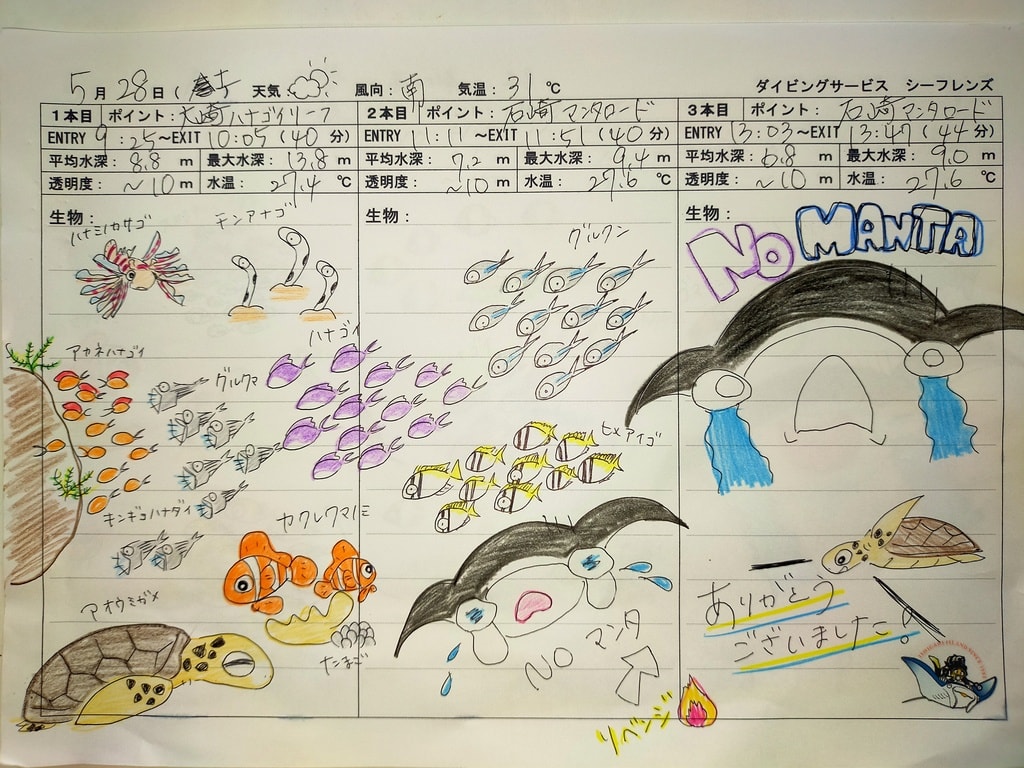 5月28日(土) 天気 風向：南 気温：31℃ ダイビングサービス シーフレンズ
1本目 ポイント：大崎ハナゴイリーフ
ENTRY 9：25～EXIT 10：05(40分)
平均水深：8.8 m 最大水深：13.8 m
透明度：～10 m 水温：27.4 ℃
生物：
ハナミノカサゴ
チンアナゴ
ハナゴイ
アカネハナゴイ
グルクマ
キンギョハナダイ
カクレクマノミ
アオウミガメ
たまご
2本目 ポイント：石崎マンタロード
ENTRY 11：11～EXIT 11：51(40分)
平均水深：7.2 m 最大水深：9.4 m
透明度：～10 m 水温：27.6 ℃
生物：
グルクン
ヒメアイゴ
NO マンタ
リベンジ
3本目 ポイント：石崎マンタロード
ENTRY 13：03～EXIT 13：47(44分)
平均水深：6.8 m 最大水深：9.0 m
透明度：～10 m 水温：27.6 ℃
生物：
NO MANTA
ありがとう
ございました！